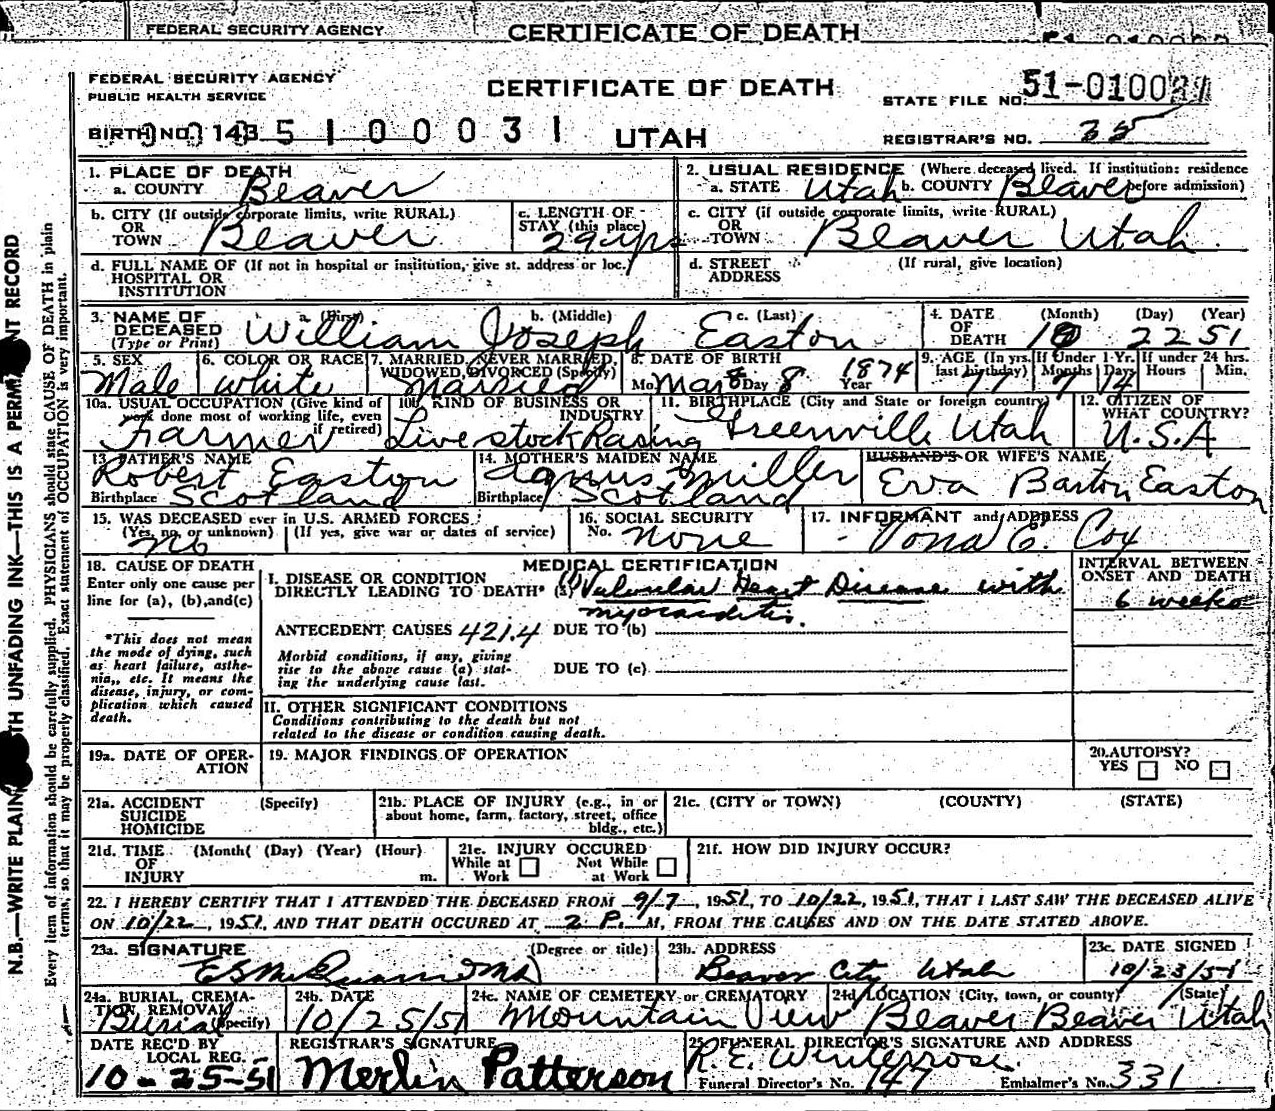 FEDERAL SECURITY AGENCY CERTIFICATE OF DEATH
FEDERAL SECURITY AGENCY
PUBLIC HEALTH SERVICE
CERTIFICATE OF DEATH
STATE FILE NO. 51-0100
BIRTH NO. 143 5 1 0 0 0 3 1
UTAH
REGISTRAR'S NO. 35
1. PLACE OF DEATH
a. COUNTY Beaver
2. USUAL RESIDENCE (Where deceased lived. If institution: residence before admission)
a. STATE Utah b. COUNTY Beaver
b. CITY (If outside corporate limits, write RURAL) OR TOWN Beaver
c. LENGTH OF STAY (this place) 29 yrs
c. CITY (if outside corporate limits, write RURAL) OR TOWN Beaver Utah
d. FULL NAME OF (If not in hospital or institution, give st. address or loc.) HOSPITAL OR INSTITUTION
d. STREET ADDRESS (If rural, give location)
3. NAME OF DECEASED (Type or Print) a. (First) b. (Middle) c. (Last)
William Joseph Easton
4. DATE OF DEATH (Month) (Day) (Year)
10 22 51
5. SEX Male
6. COLOR OR RACE white
7. MARRIED, NEVER MARRIED, WIDOWED, DIVORCED (Specify) married
8. DATE OF BIRTH Mo. Mar Day 8 Year 1874
9. AGE (In yrs. last birthday) 77 If Under 1 Yr. Months 7 Days 14 If under 24 hrs. Hours Min.
10a. USUAL OCCUPATION (Give kind of work done most of working life, even if retired) Farmer
10b. KIND OF BUSINESS OR INDUSTRY Livestock Rasing
11. BIRTHPLACE (City and State or foreign country) Greenville Utah
12. CITIZEN OF WHAT COUNTRY? U.S.A
13. FATHER'S NAME Robert Easton
Birthplace Scotland
14. MOTHER'S MAIDEN NAME Agnus Miller
Birthplace Scotland
HUSBAND'S OR WIFE'S NAME
Eva Barton Easton
15. WAS DECEASED ever in U.S. ARMED FORCES
(Yes, no, or unknown) (If yes, give war or dates of service)
No
16. SOCIAL SECURITY No. none
17. INFORMANT and ADDRESS
E. Cox
18. CAUSE OF DEATH
Enter only one cause per line for (a), (b), and (c)
*This does not mean the mode of dying, such as heart failure, asthenia, etc. It means the disease, injury, or complication which caused death.
MEDICAL CERTIFICATION
I. DISEASE OR CONDITION DIRECTLY LEADING TO DEATH* (a) Valvular Heart Disease with
myocarditis.
ANTECEDENT CAUSES 421.4 DUE TO (b)
Morbid conditions, if any, giving rise to the above cause (a) stating the underlying cause last.
DUE TO (c)
INTERVAL BETWEEN ONSET AND DEATH
6 weeks
II. OTHER SIGNIFICANT CONDITIONS
Conditions contributing to the death but not related to the disease or condition causing death.
19a. DATE OF OPERATION
19. MAJOR FINDINGS OF OPERATION
20. AUTOPSY? YES NO
21a. ACCIDENT SUICIDE HOMICIDE (Specify)
21b. PLACE OF INJURY (e.g., in or about home, farm, factory, street, office bldg., etc.)
21c. (CITY or TOWN) (COUNTY) (STATE)
21d. TIME OF INJURY (Month( (Day) (Year) (Hour) m.
21e. INJURY OCCURED While at Work Not While at Work
21f. HOW DID INJURY OCCUR?
22. I HEREBY CERTIFY THAT I ATTENDED THE DECEASED FROM 9/7, 1951, TO 10/22, 1951, THAT I LAST SAW THE DECEASED ALIVE
ON 10/22, 1951, AND THAT DEATH OCCURED AT 2 P. M, FROM THE CAUSES AND ON THE DATE STATED ABOVE.
23a. SIGNATURE (Degree or title)
23b. ADDRESS Beaver City Utah
23c. DATE SIGNED 10/23/51
24a. BURIAL, CREMATION, REMOVAL (Specify) Burial
24b. DATE 10/25/51
24c. NAME OF CEMETERY or CREMATORY Mountain View
24d. LOCATION (City, town, or county) (State) Beaver Beaver Utah
DATE REC'D BY LOCAL REG. 10-25-51
REGISTRAR'S SIGNATURE Merlin Patterson
25. FUNERAL DIRECTOR'S SIGNATURE AND ADDRESS
R. E. Winterrose.
Funeral Director's No. 147 Embalmer's No. 331
N.B.—WRITE PLAIN TH UNFADING INK—THIS IS A PERMA NT RECORD
Every item of information should be carefully supplied. PHYSICIANS should state CAUSE OF DEATH in plain
terms, so that it may be properly classified. Exact statement of OCCUPATION is very important.